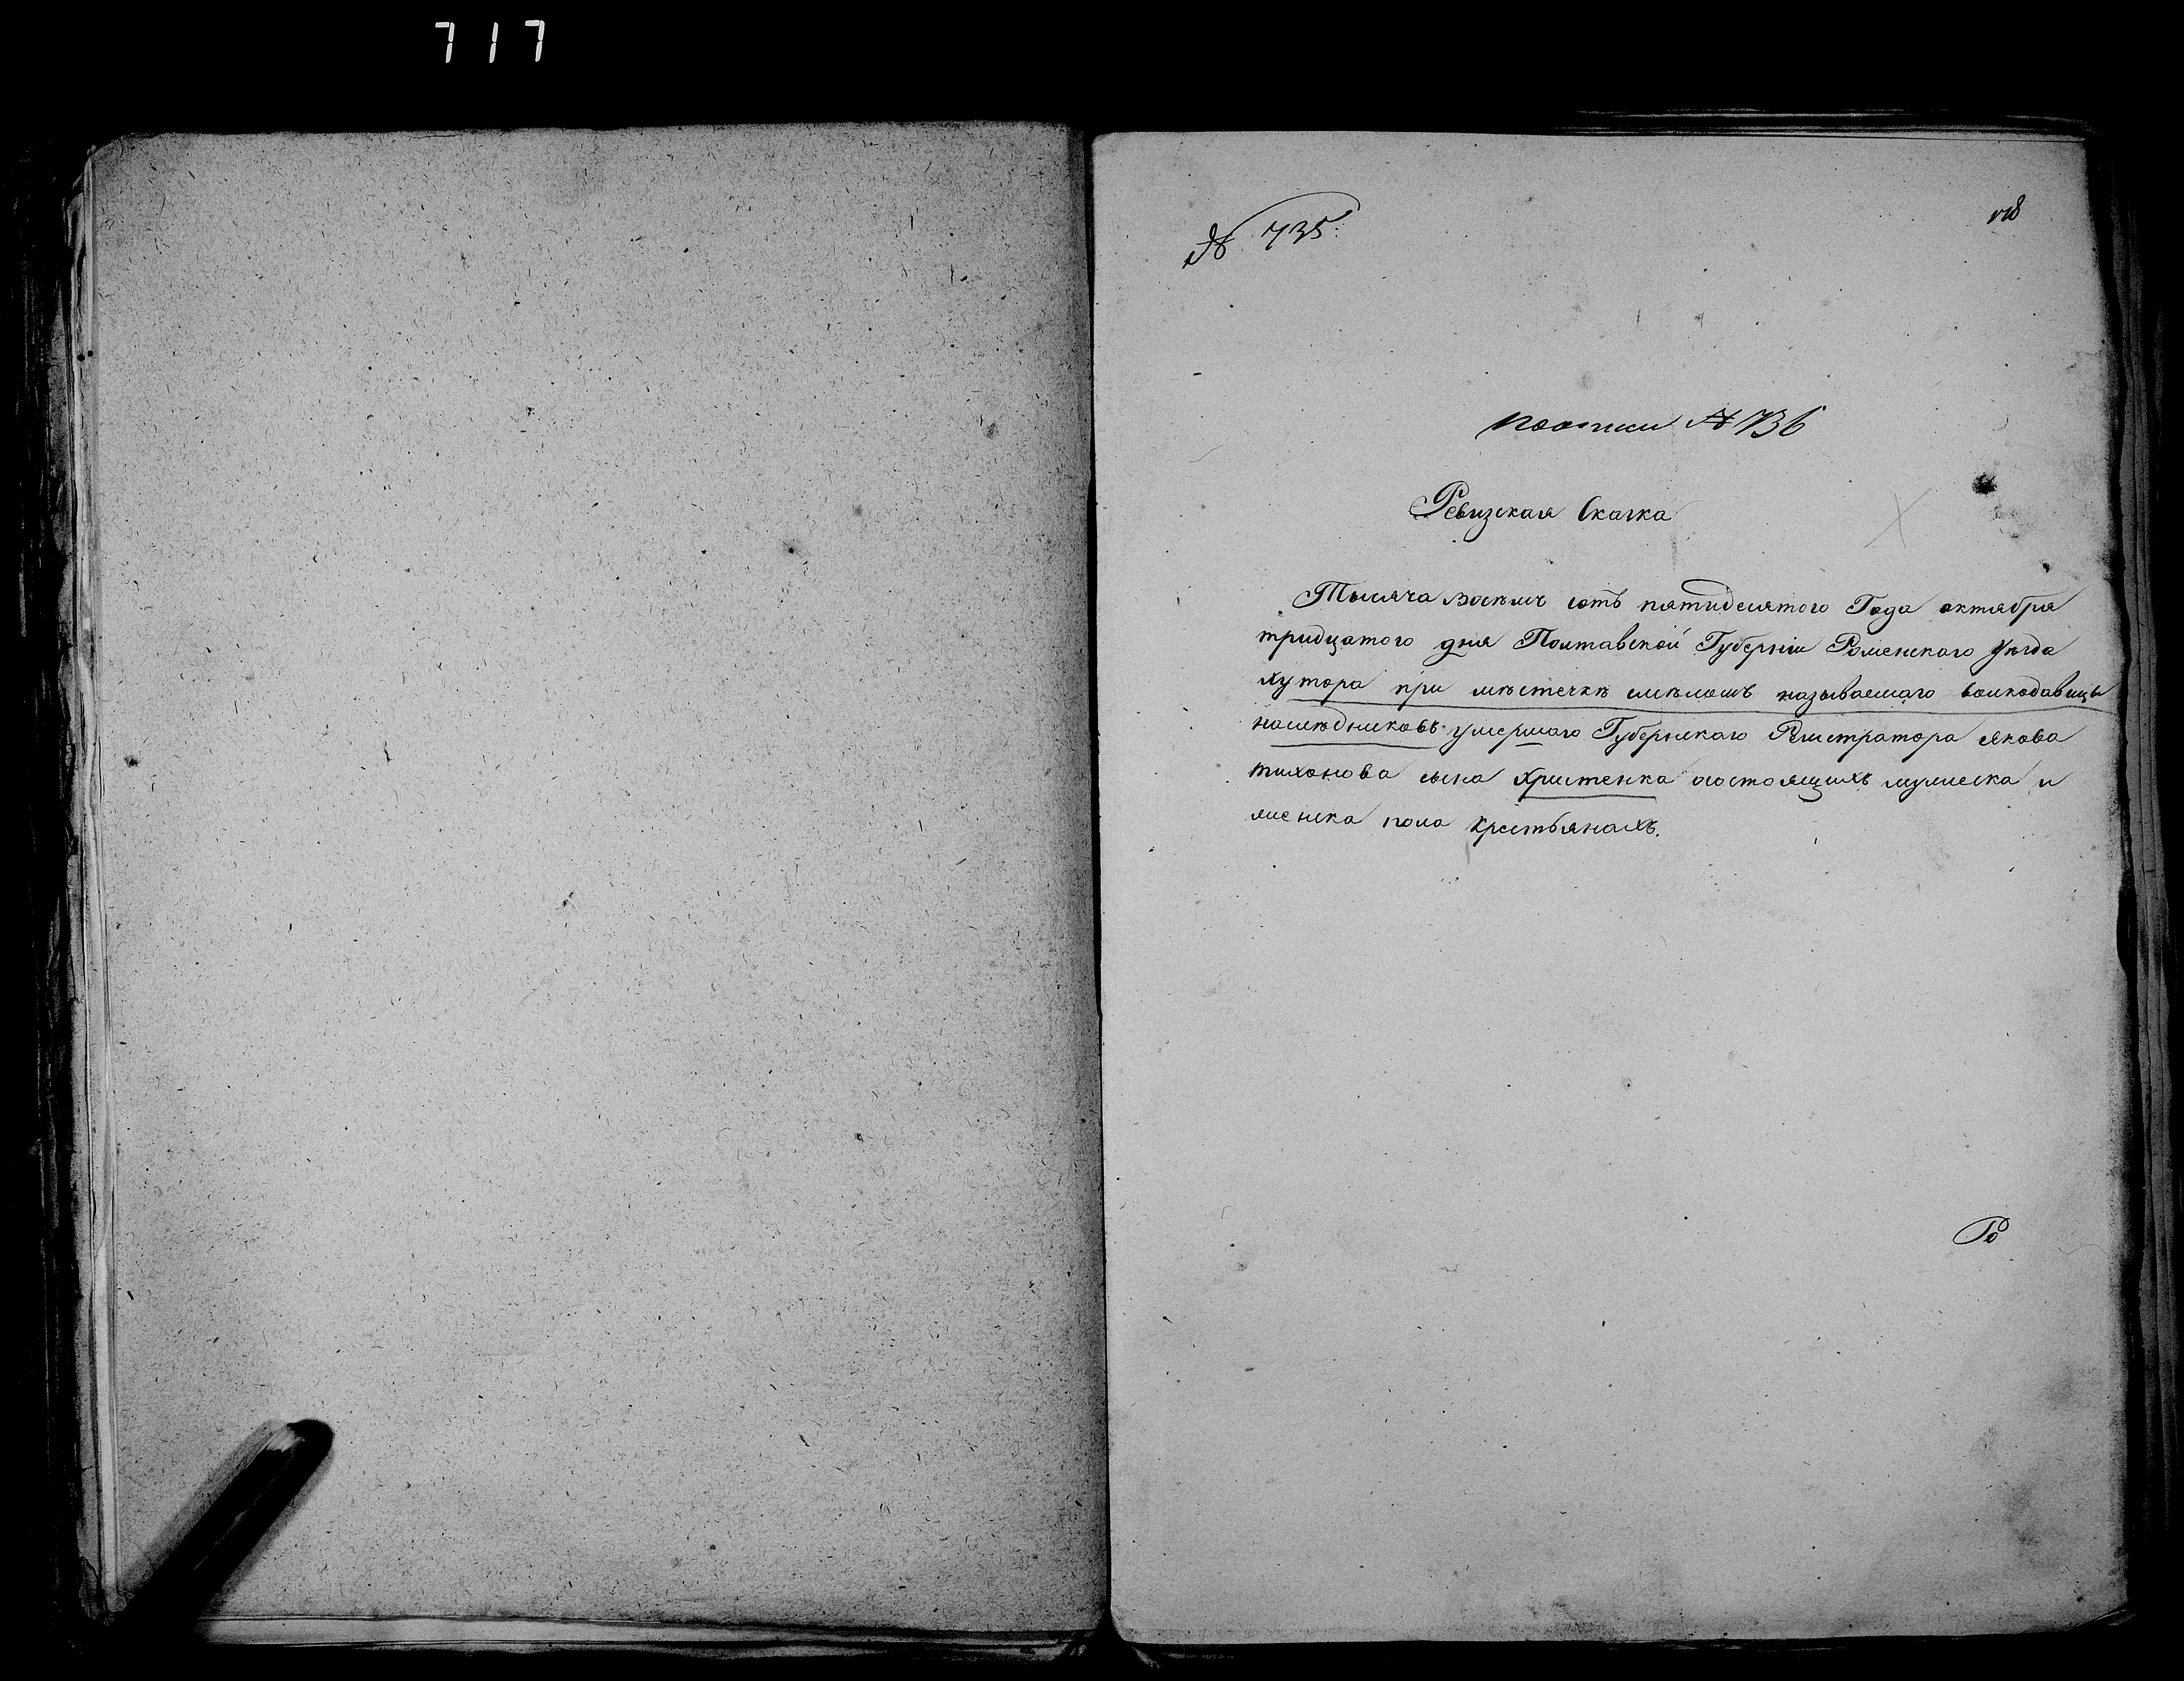 717
№ 735.
718
по описи № 736
Ревизская Сказка
Тысяча восемь сотъ пятидесятого Года октября
тридцатого дня Полтавской Губерніи Роменского уѣзда
хутора при мѣстечкѣ смѣломъ называемаго волкодавцы
наслѣдниковъ умершаго Губернскаго Регистратора якова
тихонова сына Христенка состоящихъ мужеска и
женска пола крестьянахъ.
Ро